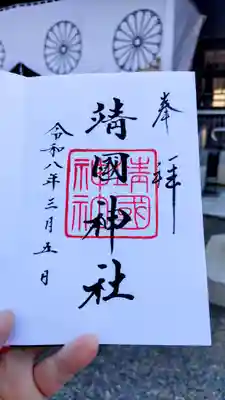 奉拝
靖國神社
靖國神社
令和八年三月五日